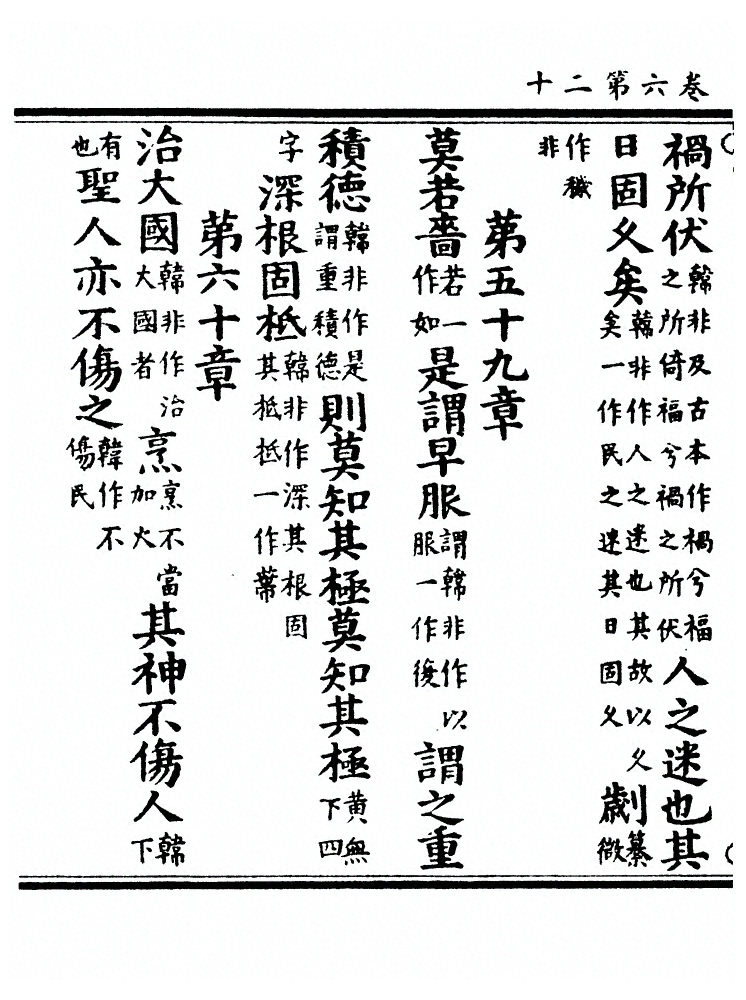 卷六第二十
禍所伏韓非及古本作禍兮福之所倚福兮禍之所伏人之迷也其
日固久矣韓非作人之迷也其故以久矣一作民之迷其日固久劌纂微
作穢非
第五十九章
莫若嗇若一作如是謂早服謂韓非作以服一作後謂之重
積德韓非作是謂重積德則莫知其極莫知其極黃無下四
字深根固柢韓非作深其根固其柢柢一作蔕
第六十章
治大國韓非作治大國者烹烹不當加火其神不傷人韓下
有也聖人亦不傷之韓作不傷民